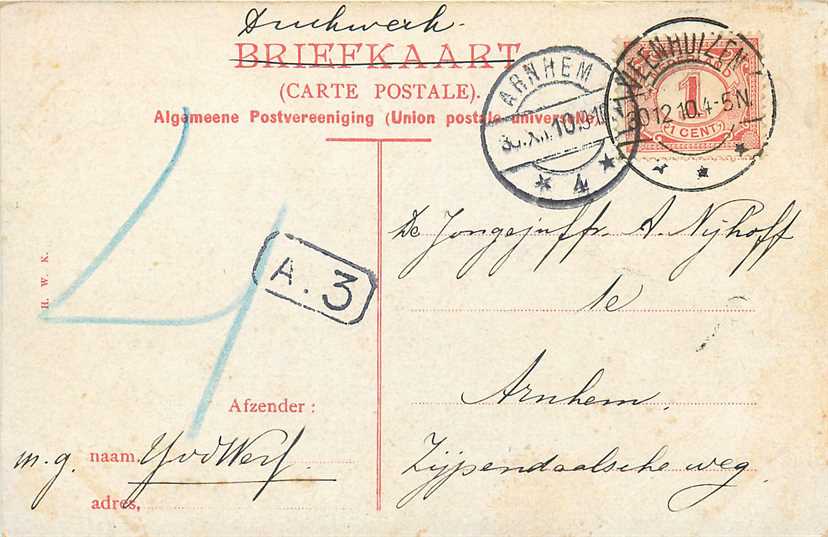 Drukwerk.
BRIEFKAART
(CARTE POSTALE).
Algemeene Postvereeniging (Union postale universelle)
ARNHEM
4
VEENHUIZEN
30 12 10.4-5N
1
1 CENT
H. W. K.
A. 3
4
De Jongejuffr. A. Nijhoff
te
Arnhem.
Zijpendaalsche weg
Afzender:
m.g. naam,
adres,